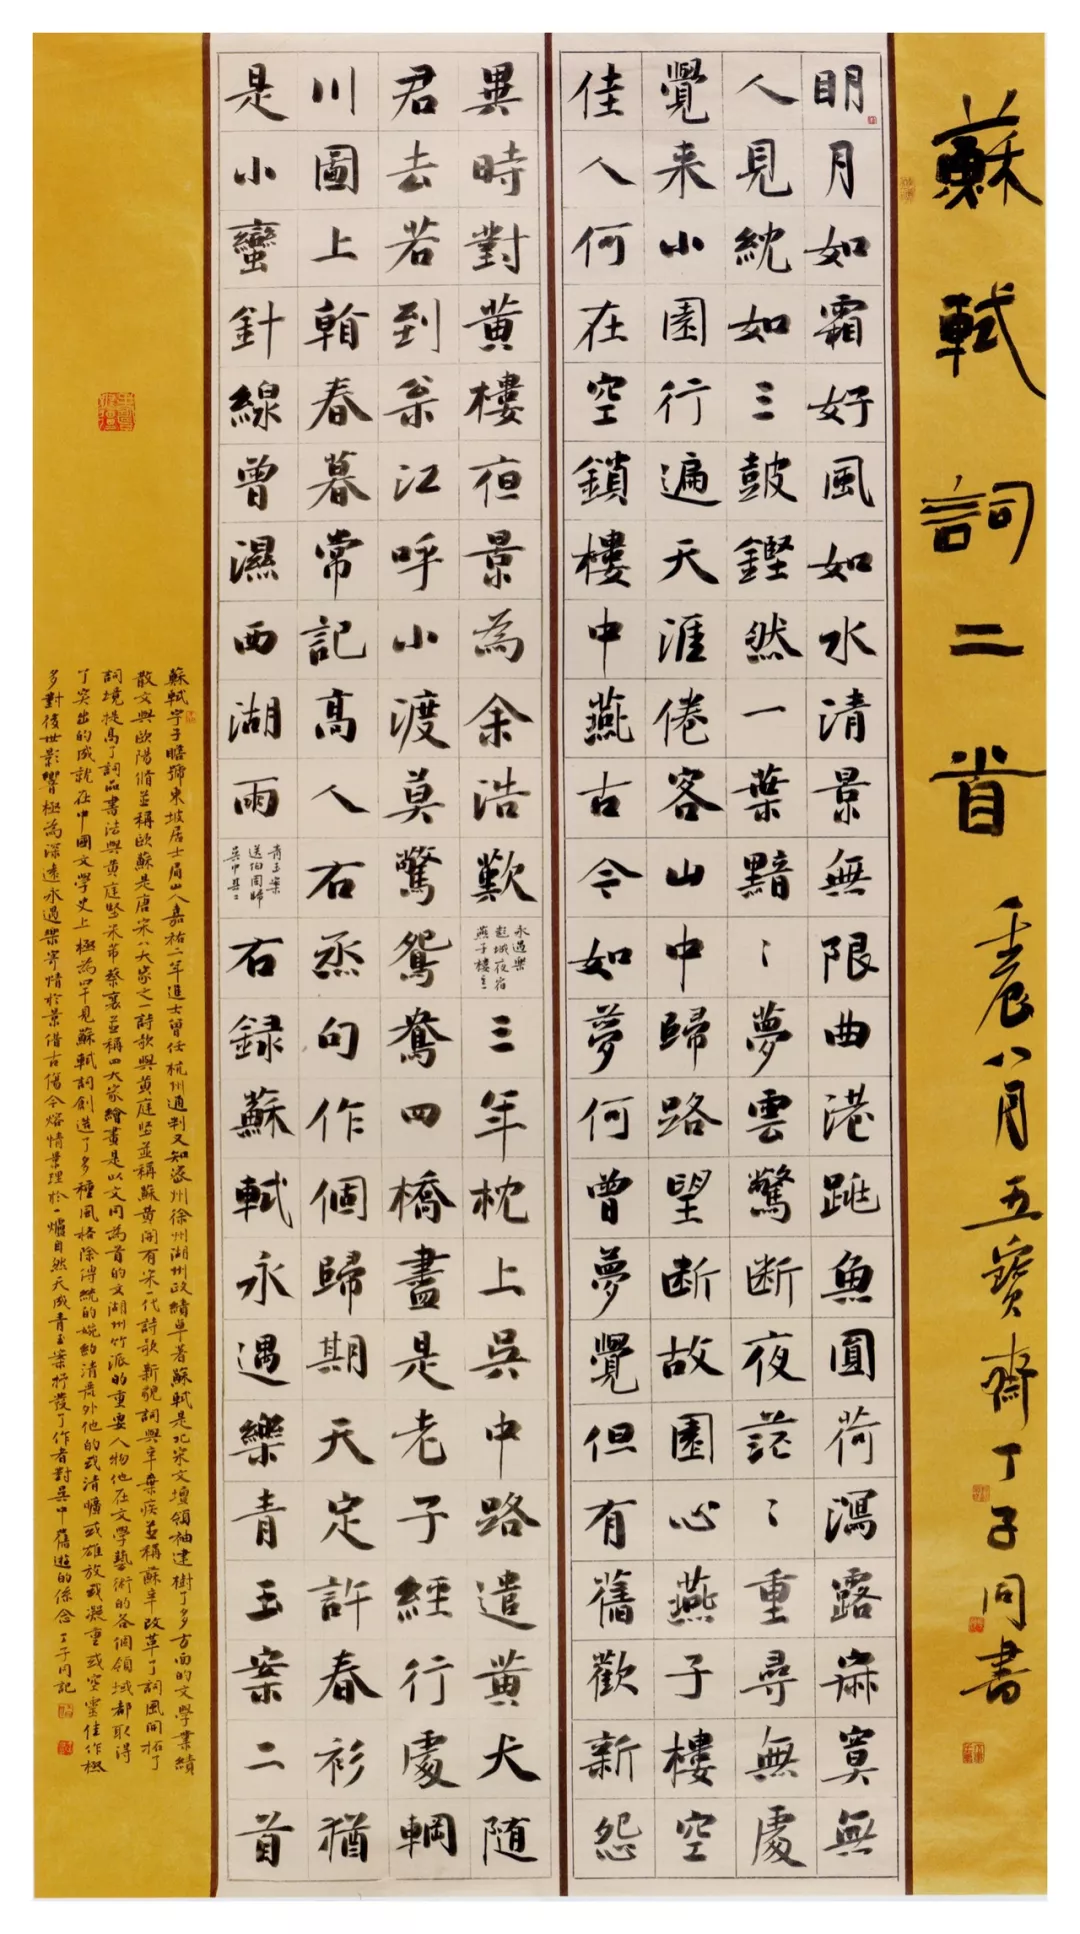 蘇軾詞二首 壬辰八月五寶齋丁子同書
明月如霜好風如水清景無限曲港跳魚圓荷瀉露寂寞無
人見紞如三鼓鏗然一葉黯〻夢雲驚断夜茫〻重尋無處
覺来小園行遍天涯倦客山中歸路望断故園心燕子樓空
佳人何在空鎖樓中燕古今如夢何曾夢覺但有舊歡新怨
異時對黄樓夜景為余浩歎
永遇樂
彭城夜宿
燕子樓
三年枕上吳中路遣黄犬随
君去若到松江呼小渡莫驚鴛鴦四橋盡是老子經行處輞
川圖上看春暮常記高人右丞句作個歸期天定許春衫猶
是小蠻針線曾濕西湖雨
青玉案
送伯固歸
吳中其二
右録蘇軾永遇樂青玉案二首
蘇軾字子瞻號東坡居士眉山人嘉祐二年進士曾任杭州通判又知密州徐州湖州政績卓著蘇軾是北宋文壇領袖建樹了多方面的文學業績
散文與歐陽脩並稱歐蘇是唐宋八大家之一詩歌與黄庭堅並稱蘇黄開有宋一代詩歌新貌詞與辛棄疾並稱蘇辛改革了詞風開拓了
詞境提高了詞品書法與黄庭堅米芾蔡襄並稱四大家繪畫是以文同為首的文湖州竹派的重要人物他在文學藝術的各個領域都取得
了突出的成就在中國文學史上極為罕見蘇軾詞創造了多種風格除傳統的婉約清麗外他的或清曠或雄放或凝重或空靈佳作極
多對後世影響極為深遠永遇樂寄情於景借古傷今熔情景理於一爐自然天成青玉案抒發了作者對吳中舊遊的係念丁子同記